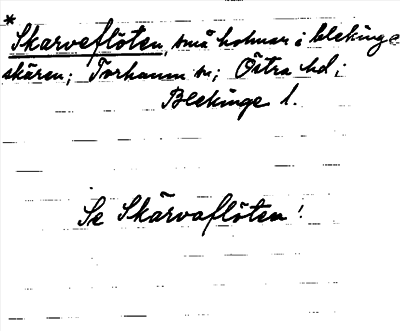 * Skarveflöten, små holmar i blekinge
skären; Torhamn sn; Östra hd;
Blekinge l.
Se Skärvaflöten!